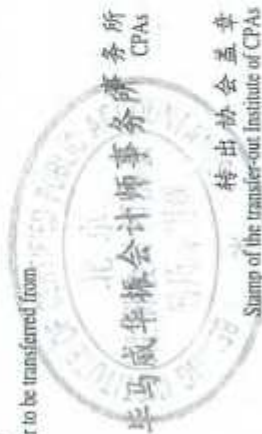 r to be transferred from
事务所
CPAs
毕马威华振会计师事务所
转出协会盖章
Stamp of the transfer-out Institute of CPAs